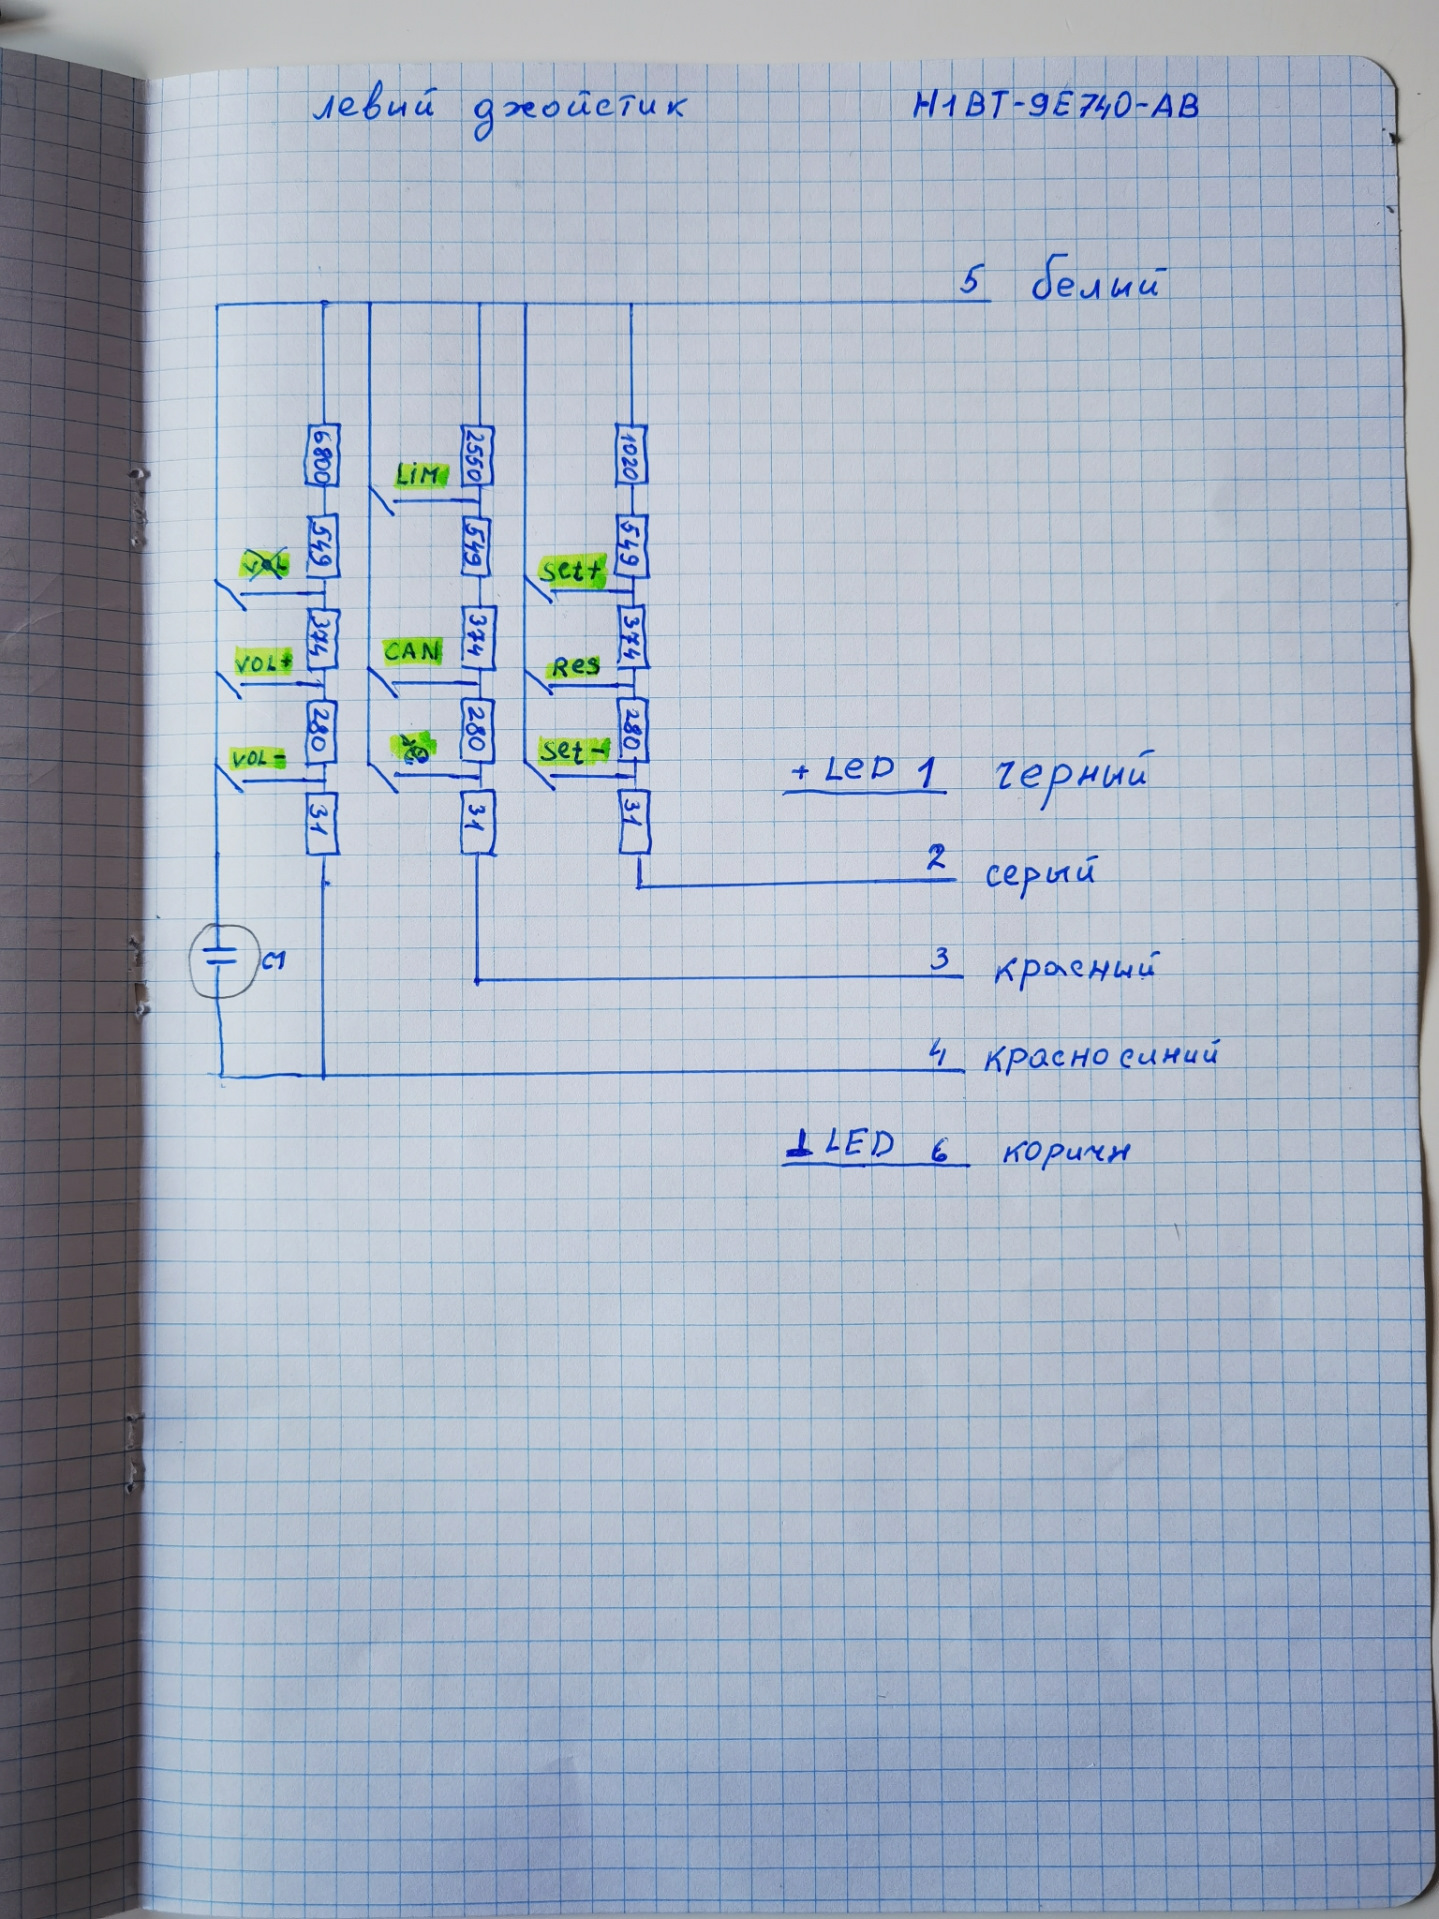 левый джойстик H1BT-9E740-AB
5 белый
6800 2550 1020
LIM
549 549 549
VOL Set+
374 374 374
VOL+ CAN Res
280 280 280
VOL- Set-
+ LED 1 черный
31 31 31
2 серый
C1
3 красный
4 красно синий
⊥ LED 6 коричн